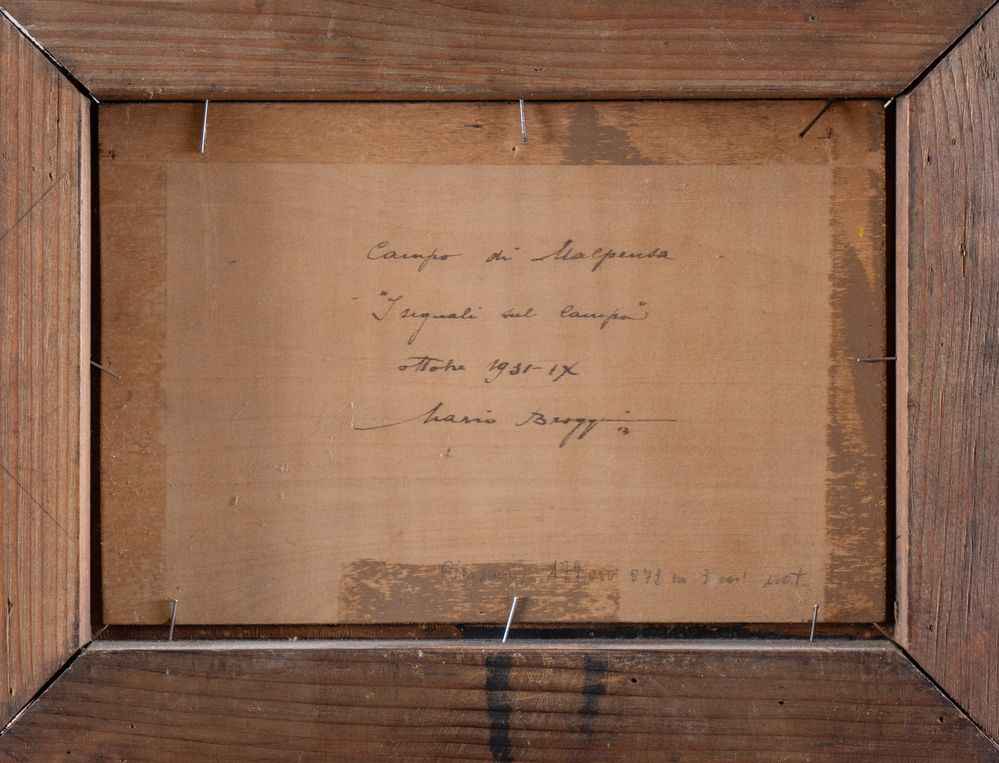 Campo di Malpensa
"I segnali sul campo"
ottobre 1931-IX
Mario Broggi
072 in 3